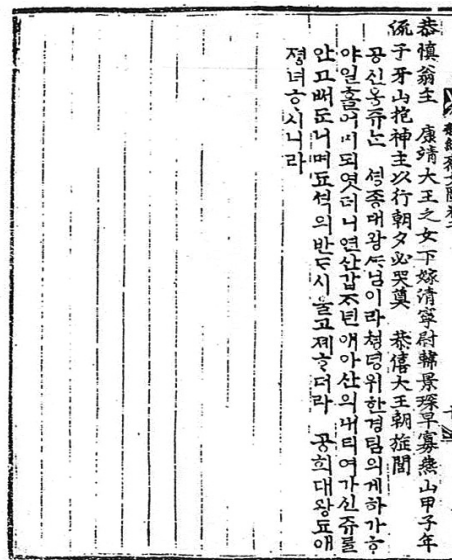 恭愼翁主 康靖大王之女下嫁清寧尉韓景琛早寡燕山甲子年
流于牙山抱神主以行朝夕必哭奠 恭僖大王朝旌閭
공신옹쥬는 셩종대왕ᄯᆞ님이라쳥녕위한경팀의게하가ᄒᆞ
야일홀어미되엿더니연산갑ᄌᆞ년애아산의내티여가신쥬를
안고ᄇᆡ도니며됴셕의반ᄃᆞ시울고졔ᄒᆞ더라 공희대왕됴애
졍녀ᄒᆞ시니라